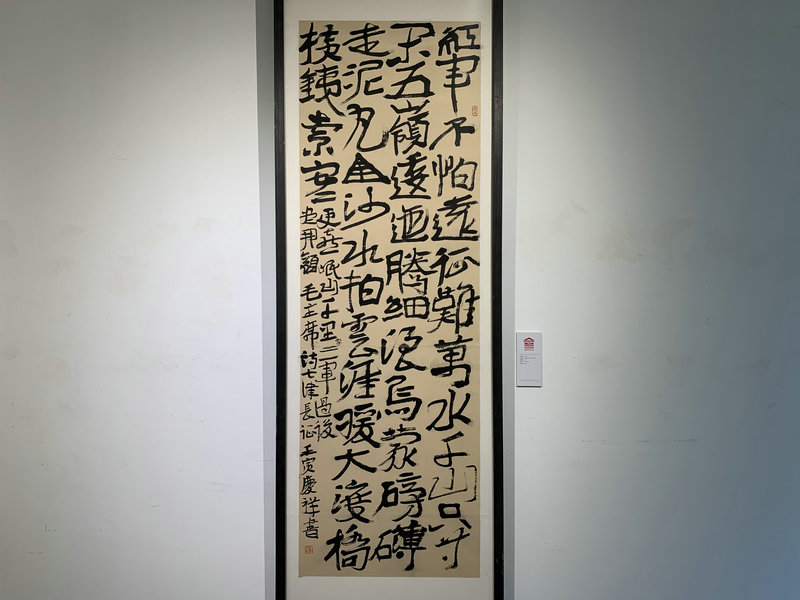 紅軍不怕遠征難萬水千山只等
閑五嶺逶迤騰細浪烏蒙磅礴
走泥丸金沙水拍雲崖暖大渡橋
橫鐵索寒
更喜岷山千里三軍過後
盡開顏 毛主席诗七律長征 壬寅慶祥書